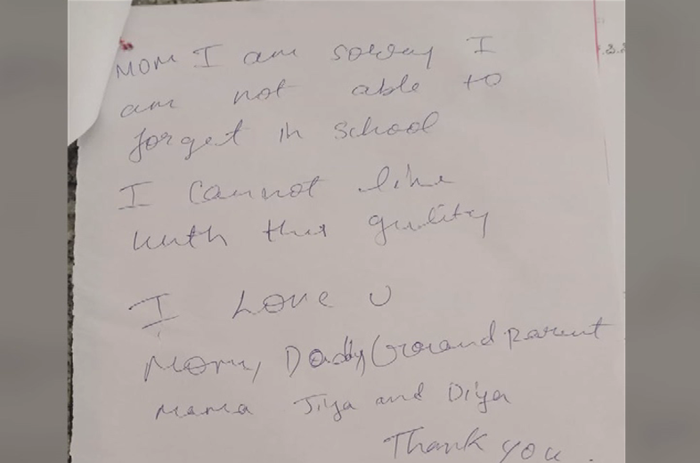 MOM I am sorry I
am not able to
forget in school
I cannot live
with this guility
I Love U
Mom, Daddy Grandparent
Mama Jiya and Diya
Thank you.